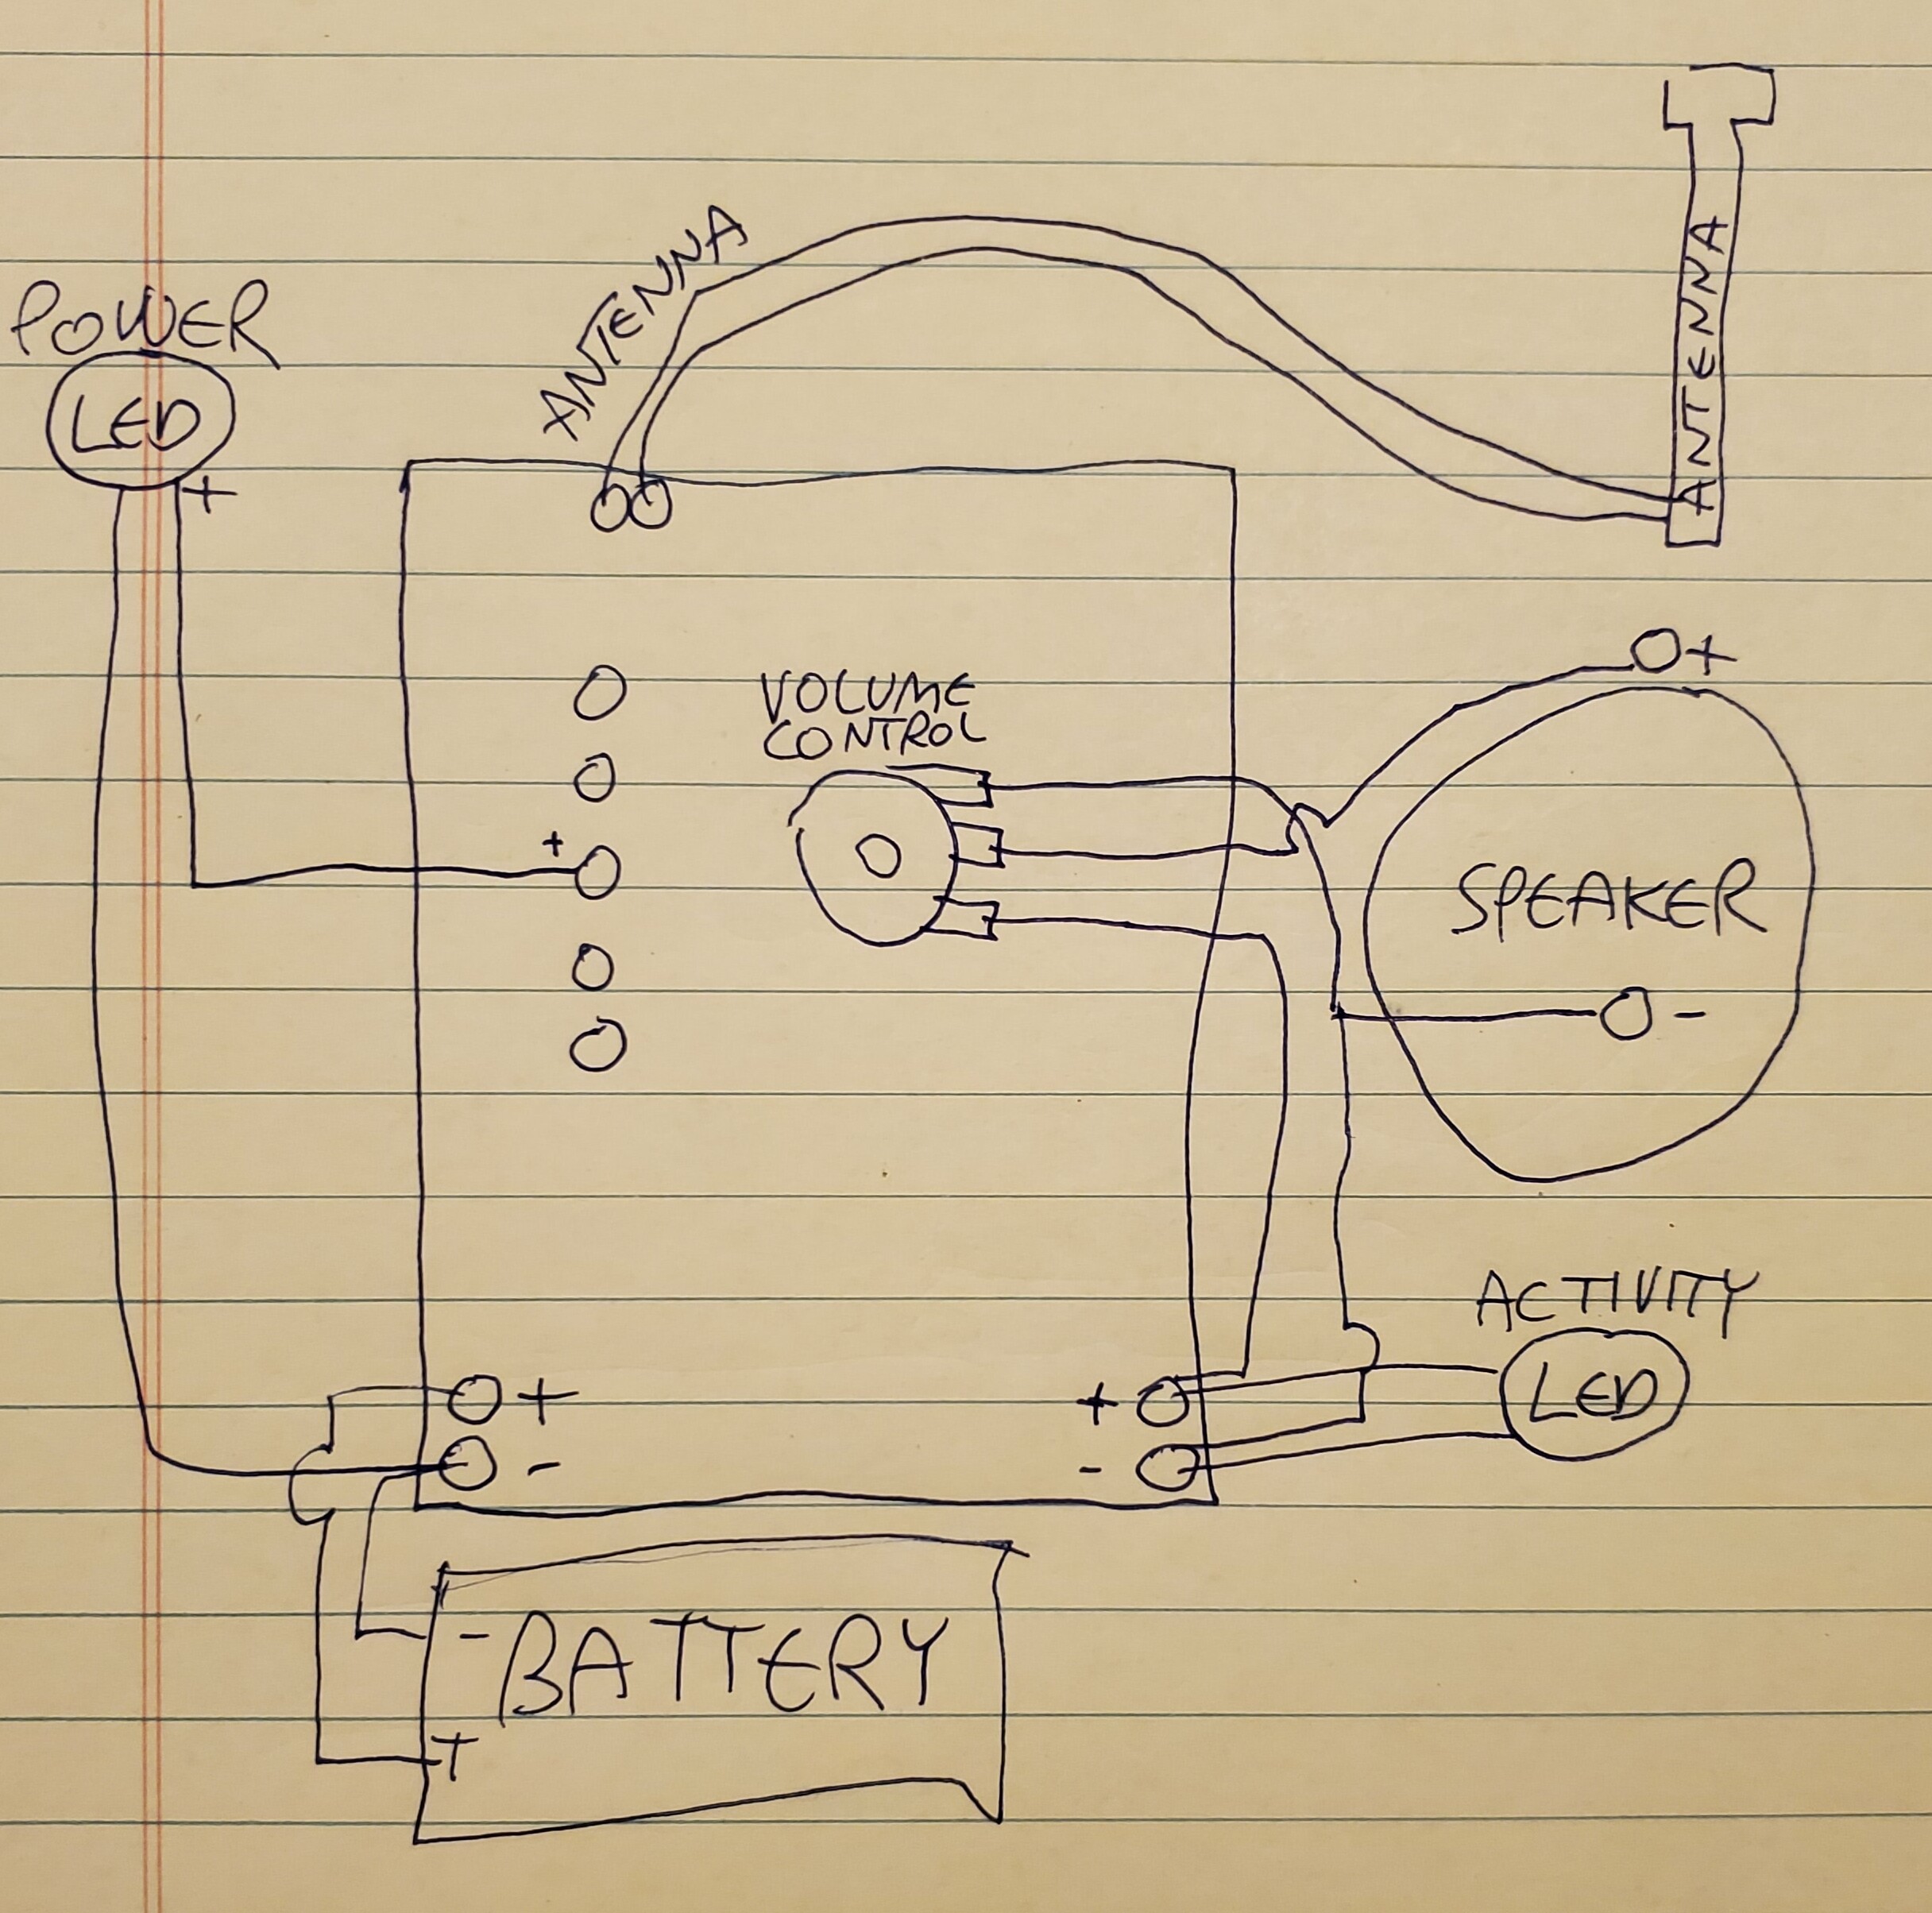 ANTENNA
ANTENNA
POWER
LED
+
+
VOLUME
CONTROL
+
SPEAKER
-
ACTIVITY
LED
+
-
+
-
- BATTERY
+